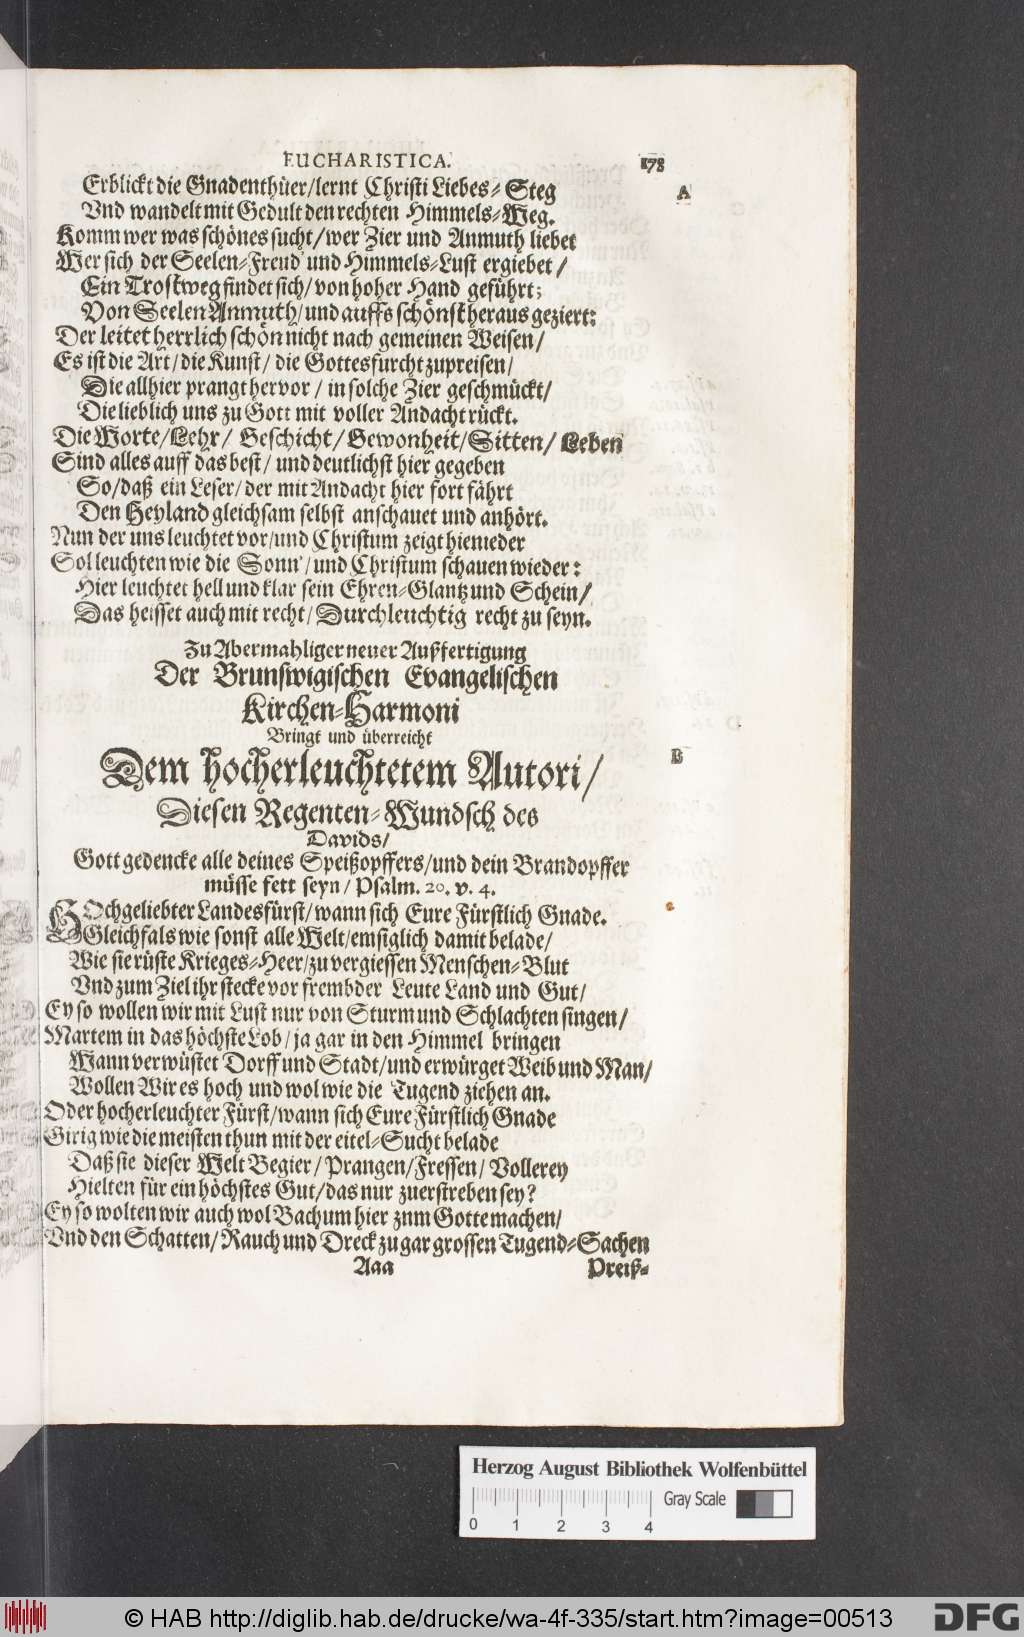 EUCHARISTICA. 178
Erblickt die Gnadenthüer/lernt Christi Liebes-Steg A
Vnd wandelt mit Gedult den rechten Himmels-Weg.
Komm wer was schönes sucht/wer Zier und Anmuth liebet
Wer sich der Seelen-Freud und Himmels-Lust ergiebet/
Ein Trostweg findet sich/von hoher Hand geführt;
Von Seelen Anmuth/und auffs schönst heraus geziert:
Der leitet herrlich schön nicht nach gemeinen Weisen/
Es ist die Art/die Kunst/ die Gottesfurcht zupreisen/
Die allhier prangt hervor/ in solche Zier geschmückt/
Die lieblich uns zu Gott mit voller Andacht rückt.
Die Worte/Lehr/ Geschicht/Gewonheit/Sitten/ Leben
Sind alles auff das best/ und deutlichst hier gegeben
So/daß ein Leser/der mit Andacht hier fort fährt
Den Heyland gleichsam selbst anschauet und anhört.
Nun der uns leuchtet vor/und Christum zeigt hienieder
Sol leuchten wie die Sonn/und Christum schauen wieder:
Hier leuchtet hell und klar sein Ehren-Glantz und Schein/
Das heisset auch mit recht/Durchleuchtig recht zu seyn.
Zu Abermahliger neuer Außfertigung
Der Brunswigischen Evangelischen
Kirchen-Harmoni
Bringt und überreicht
Dem hocherleuchtetem Autori/ B
Diesen Regenten-Wundsch des
Davids/
Gott gedencke alle deines Speißopffers/und dein Brandopffer
müsse fett seyn/Psalm. 20. v. 4.
HOchgeliebter Landesfürst/wann sich Eure Fürstlich Gnade.
Gleichfals wie sonst alle Welt/emsiglich damit belade/
Wie sie rüste Krieges-Heer/zu vergiessen Menschen-Blut
Vnd zum Ziel ihr stecke vor frembder Leute Land und Gut/
Ey so wollen wir mit Lust nur von Sturm und Schlachten singen/
Martem in das höchste Lob/ja gar in den Himmel bringen
Wann verwüstet Dorff und Stadt/und erwürget Weib und Man/
Wollen Wir es hoch und wol wie die Tugend ziehen an.
Oder hocherleuchter Fürst/wann sich Eure Fürstlich Gnade
Girig wie die meisten thun mit der eitel-Sucht belade
Daß sie dieser Welt Begier/Prangen/Fressen/ Vollerey
Hielten für ein höchstes Gut/das nur zuerstreben sey?
Ey so wolten wir auch wol Bachum hier znm Gotte machen/
Vnd den Schatten/Rauch und Dreck zu gar grossen Tugend-Sachen
Aaa Preiß-
Herzog August Bibliothek Wolfenbüttel
Gray Scale
0 1 2 3 4
© HAB http://diglib.hab.de/drucke/wa-4f-335/start.htm?image=00513 DFG